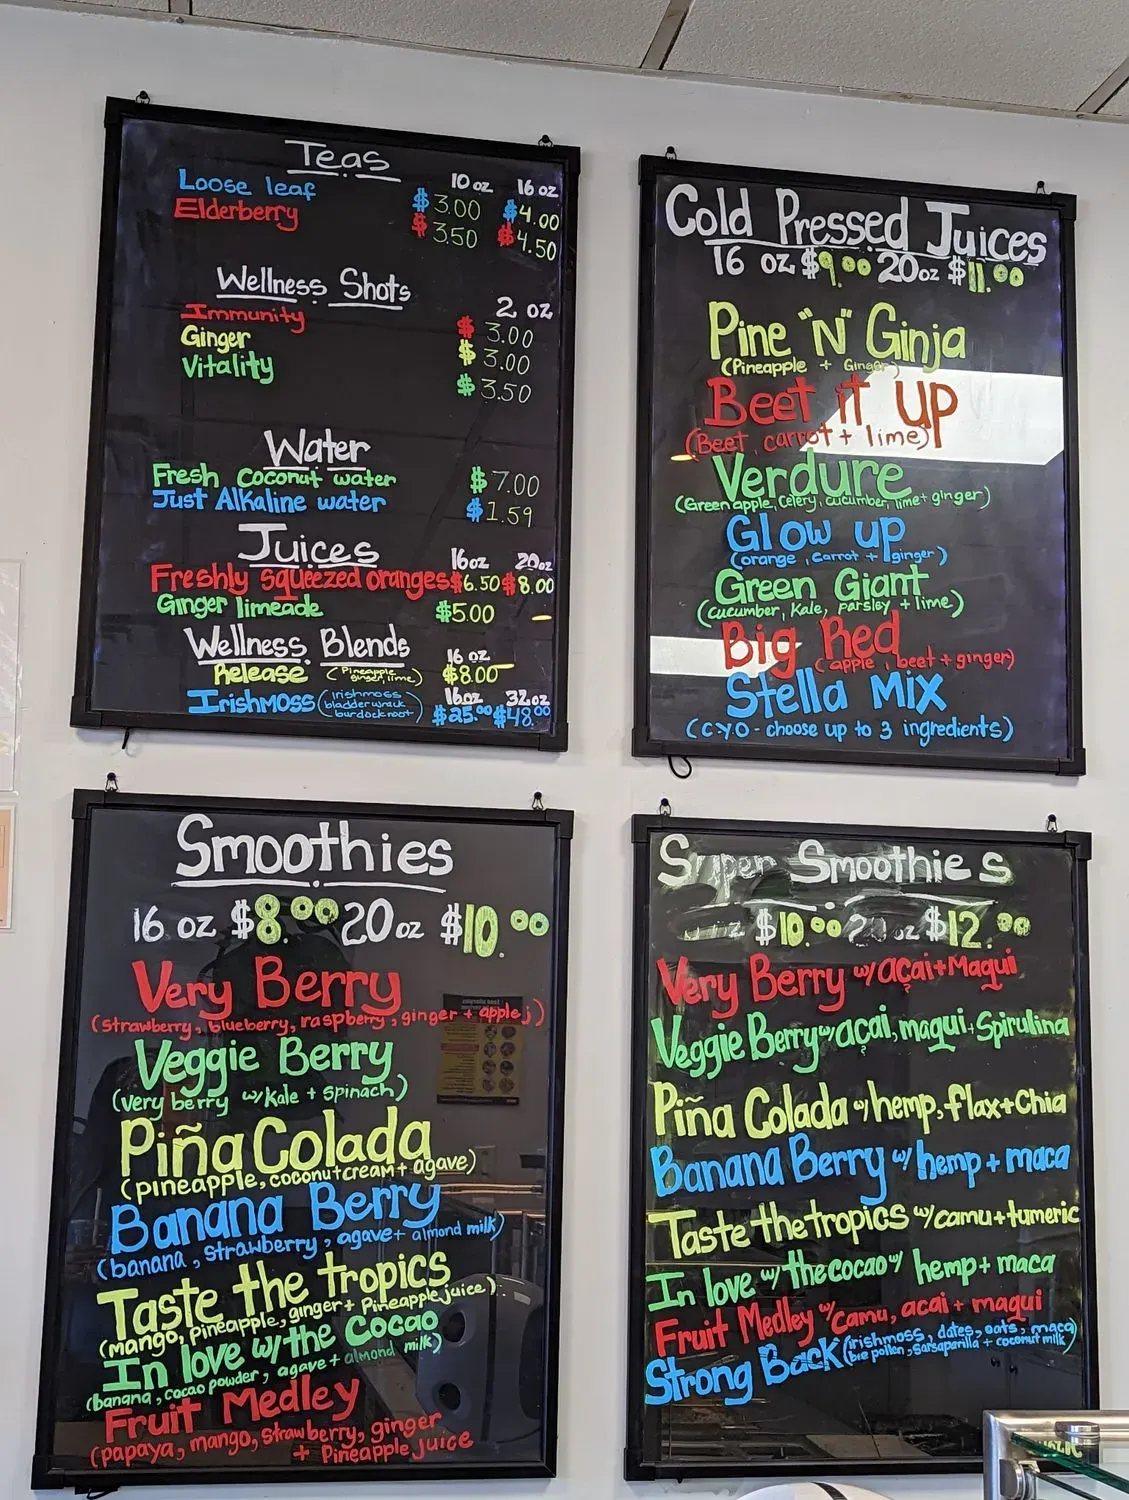 Teas
10 oz 16 oz
Loose leaf $3.00 $4.00
Elderberry $3.50 $4.50
Wellness Shots
2 oz
Immunity $3.00
Ginger $3.00
Vitality $3.50
Water
Fresh coconut water $7.00
Just Alkaline water $1.59
Juices
16oz 20oz
Freshly squeezed oranges $6.50 $8.00
Ginger limeade $5.00
Wellness Blends
16 oz
Release (Pineapple, ginger, lime) $8.00
16oz 32oz
Irishmoss (irishmoss bladderwrack burdockroot) $25.00 $48.00
Cold Pressed Juices
16 oz $9.00 20oz $11.00
Pine "N" Ginja
(Pineapple + Ginger)
Beet it up
(Beet, carrot + lime)
Verdure
(Green apple, celery, cucumber, lime + ginger)
Glow up
(orange, carrot + ginger)
Green Giant
(cucumber, Kale, parsley + lime)
Big Red
(apple, beet + ginger)
Stella Mix
(CYO - choose up to 3 ingredients)
Smoothies
16 oz $8.00 20oz $10.00
Very Berry
(strawberry, blueberry, raspberry, ginger + apple j)
Veggie Berry
(very berry w/ Kale + Spinach)
Piña Colada
(pineapple, coconut cream + agave)
Banana Berry
(banana, strawberry, agave + almond milk)
Taste the tropics
(mango, pineapple, ginger + Pineapple juice)
In love w/ the Cocao
(banana, cacao powder, agave + almond milk)
Fruit Medley
(papaya, mango, strawberry, ginger
+ Pineapple juice
Super Smoothies
oz $10.00 20 oz $12.00
Very Berry w/ açai + Maqui
Veggie Berry w/ açai, maqui + Spirulina
Piña Colada w/ hemp, flax + Chia
Banana Berry w/ hemp + maca
Taste the tropics w/ camu + tumeric
In love w/ the cocao w/ hemp + maca
Fruit Medley w/ camu, acai + maqui
Strong Back (irishmoss, dates, oats, maca
bee pollen, sarsaparilla + coconut milk)